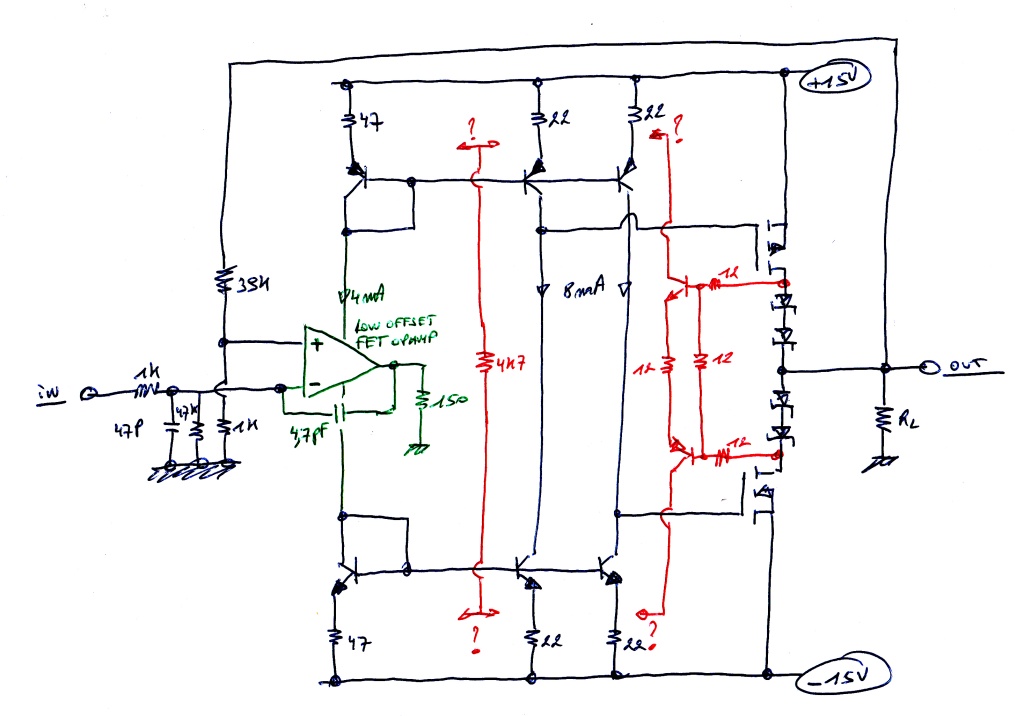 +15V
47
?
22
22
?
39K
12
4mA
8mA
LOW OFFSET
FET OPAMP
+
-
1K
iN
4K7
12
12
OUT
150
47P
47K
1K
4,7pF
RL
12
47
?
22
22
?
-15V